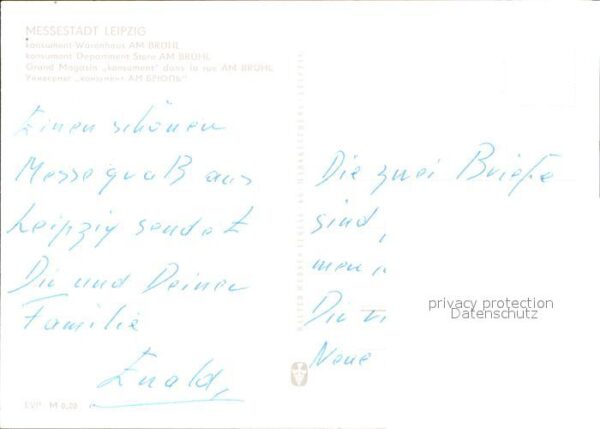 MESSESTADT LEIPZIG
konsument Warenhaus AM BRÜHL
konsument Department Store AM BRÜHL
Grand Magasin „konsument" dans la rue AM BRÜHL
Универмаг „консумент АМ БРЮЛЬ"
Einen schönen
Messegruß aus
Leipzig sendet
Dir und Deiner
Familie
Ewald,
EVP M 0,20
Die zwei Briefe
sind,
men
Die
Neue
privacy protection
Datenschutz